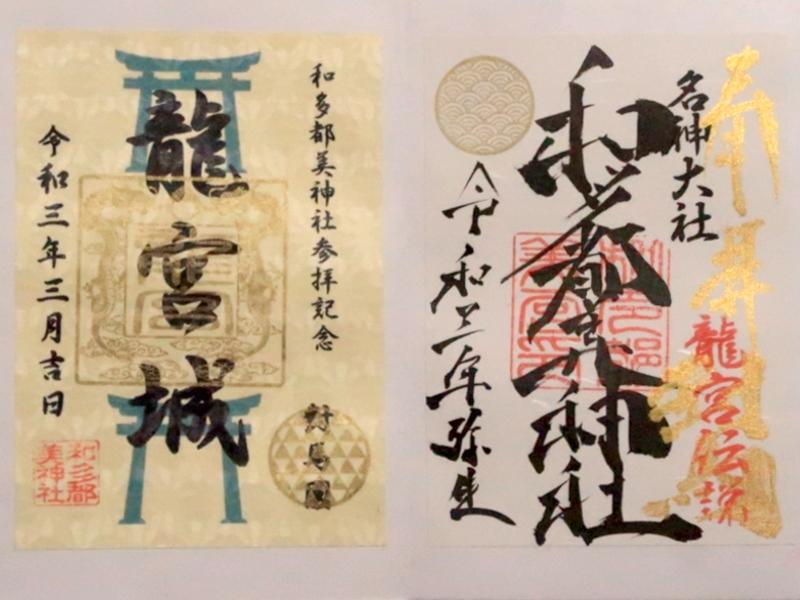 和多都美神社参拝記念
龍宮城
令和三年三月吉日
對馬國
和多都
美神社
奉拝
名神大社
龍宮伝説
和多都美神社
令和三年弥生